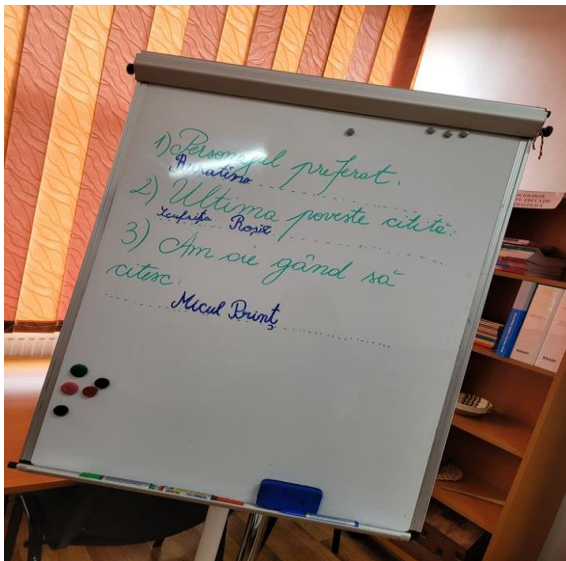 1) Personajul preferat.
Buratino
2) Ultima poveste citită:
Scufrița Roșie
3) Am de gând să
citesc.
Micul Prinț